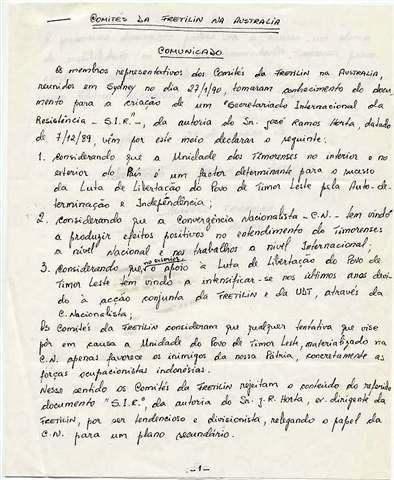 COMITÉS DA FRETILIN NA AUSTRALIA
COMUNICADO
Os membros representativos dos Comités da FRETILIN na AUSTRALIA,
reunidos em Sydney no dia 27/1/90, tomaram conhecimento do docu-
mento para a criação de um "Secretariado Internacional da
Resistência - S.I.R." -, da autoria do Sr. José Ramos Horta, datado
de 7/12/89, vêm por este meio declarar o seguinte:
1. Considerando que a Unidade dos Timorenses no interior e no
exterior do País é um factor determinante para o sucesso
da Luta de Libertação do Povo de Timor Leste pela Auto-de-
terminação e Independência;
2. Considerando que a Convergência Nacionalista - C.N. - tem vindo
a produzir efeitos positivos no entendimento do timorenses
a nível Nacional e nos trabalhos a nível Internacional;
no exterior
3. Considerando que o apoio à Luta de Libertação do Povo de
Timor Leste tem vindo a intensificar-se nos últimos anos devi-
do à acção conjunta da FRETILIN e da UDT, através da
C. Nacionalista;
Os Comités da FRETILIN consideram que qualquer tentativa que vise
pôr em causa a Unidade do Povo de Timor Leste, materializada na
C.N. apenas favorece os inimigos da nossa Pátria, concretamente as
forças ocupacionistas indonésias.
Nesse sentido os Comités da FRETILIN rejeitam o conteúdo do referido
documento "S.I.R.", da autoria do Sr. J.R. Horta, ex. dirigente da
FRETILIN, por ser tendencioso e divisionista, relegando o papel da
C.N. para um plano secundário.
-1-